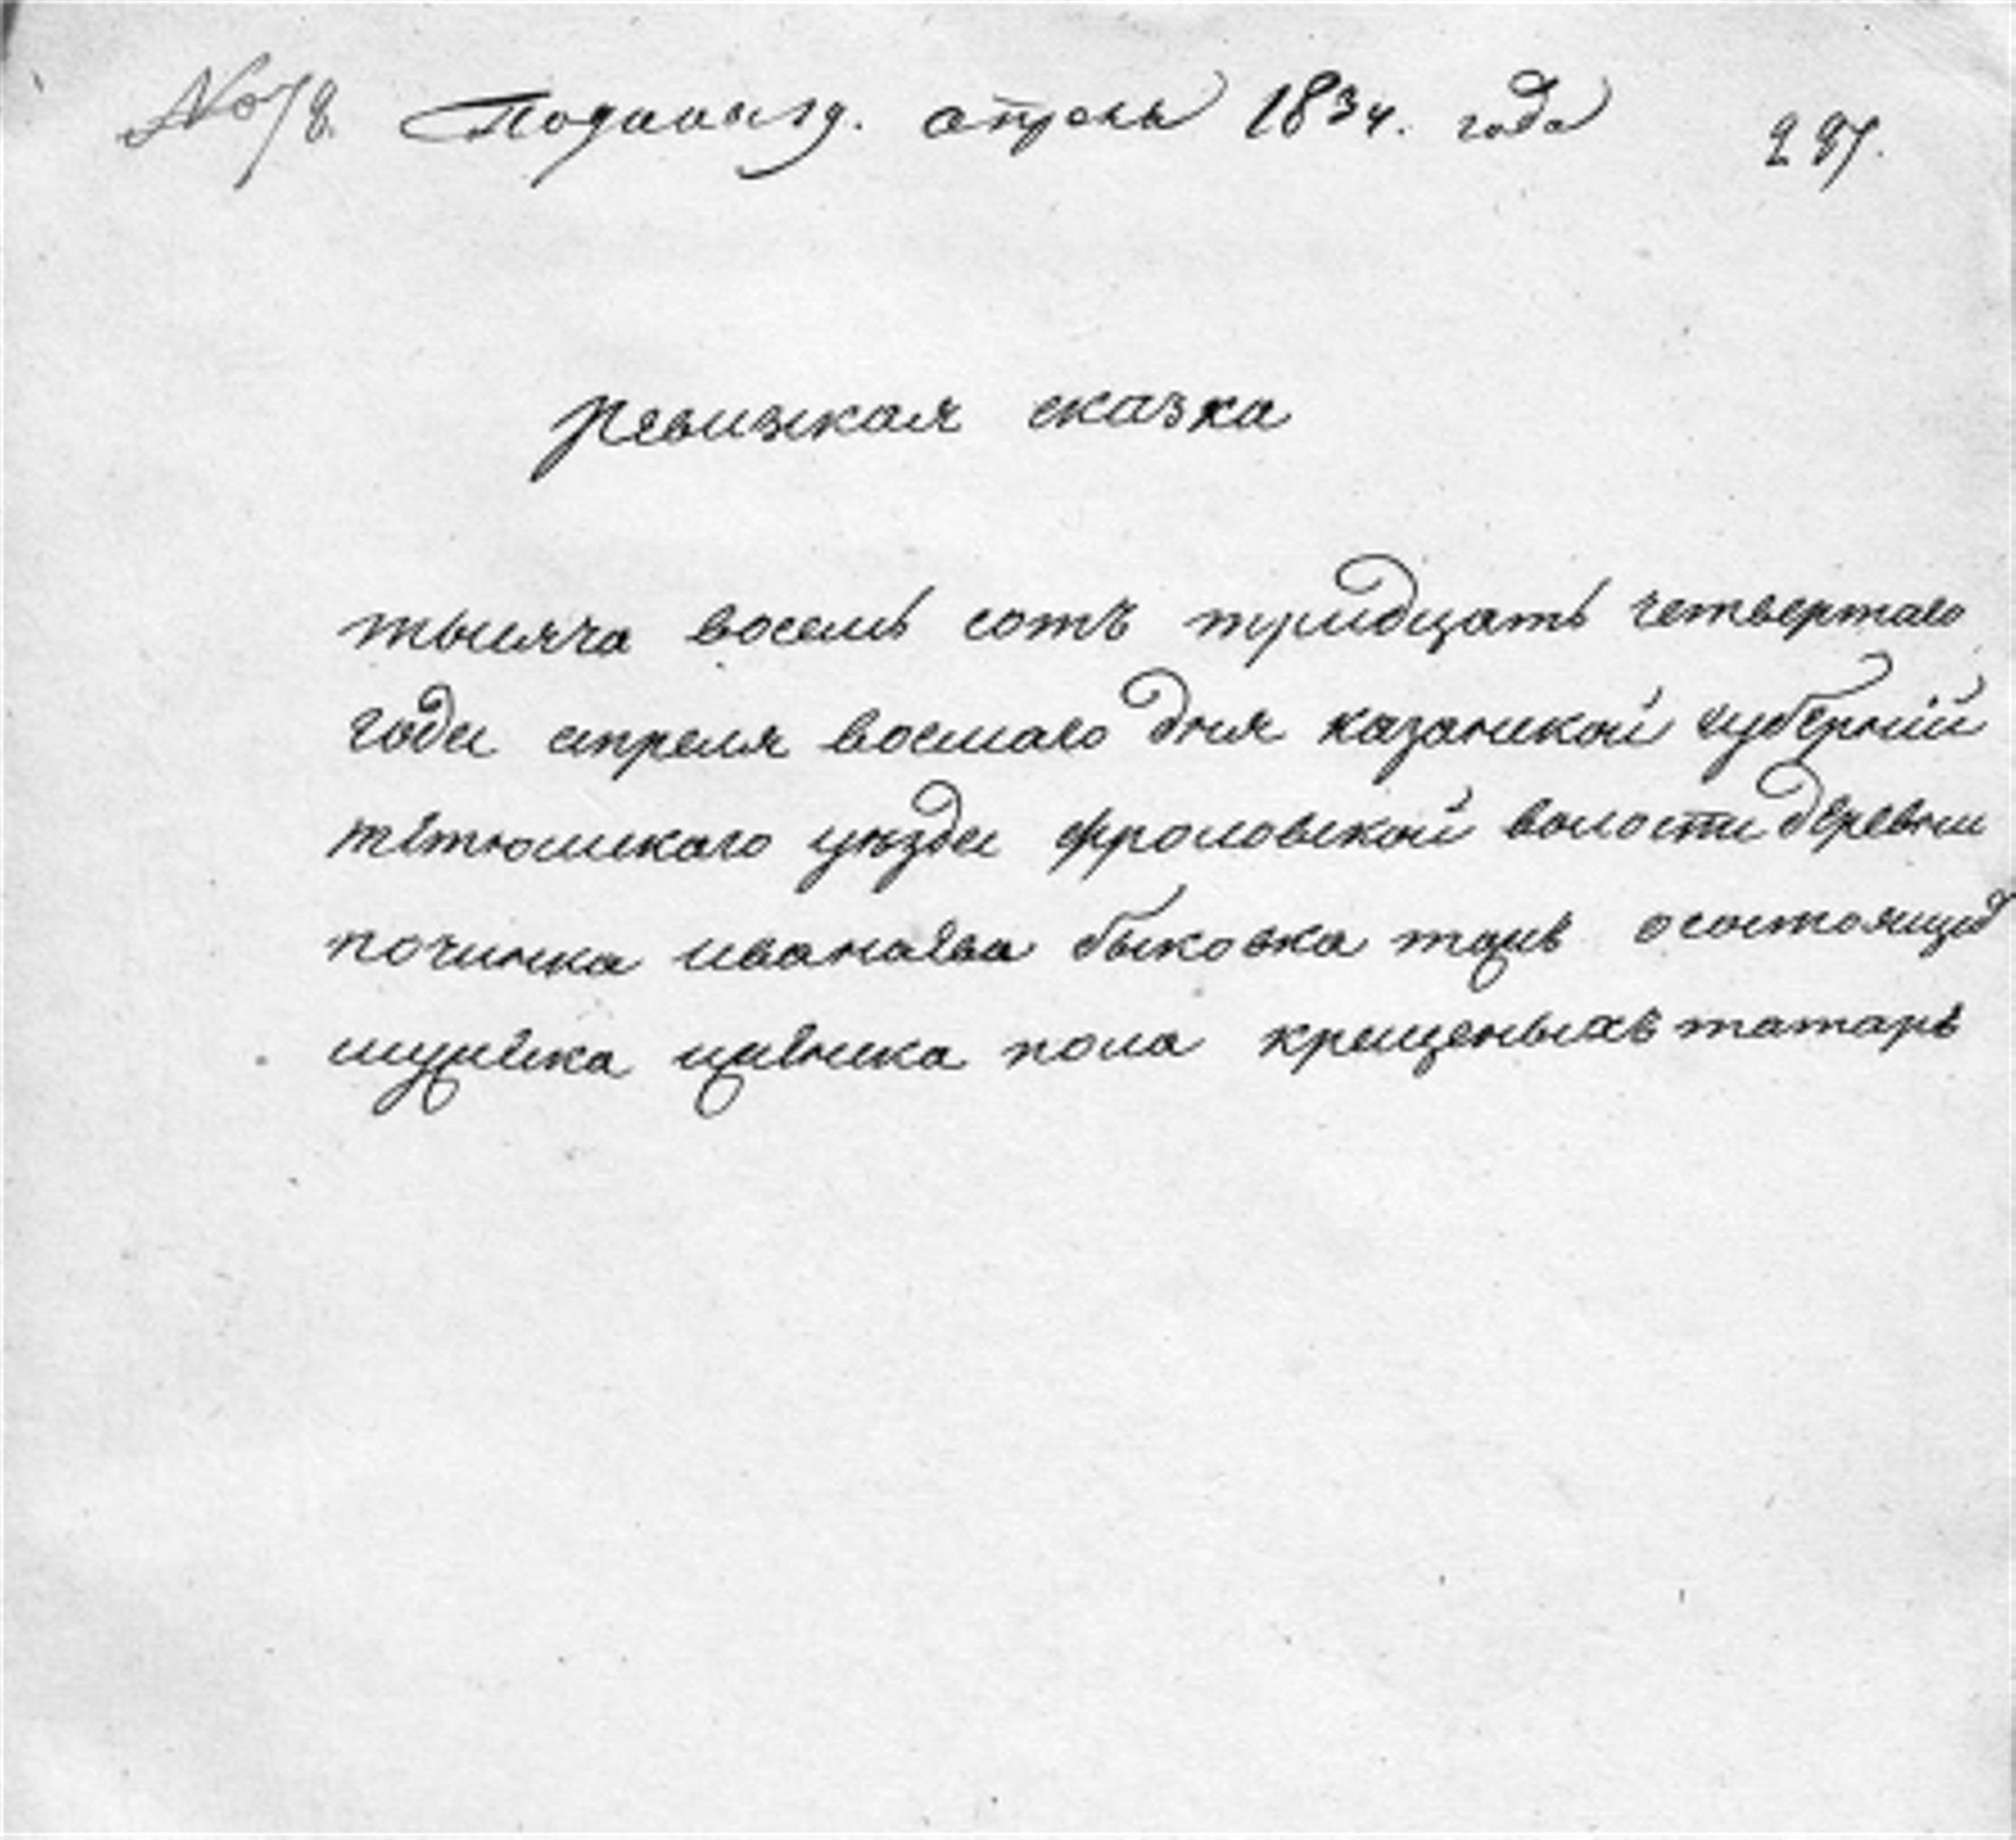 № 78. Подана 19. апреля 1834. года 287.
ревизкая сказка
тысяча восемь сотъ тридцать четвертаго
года апреля восмаго дня казанской губернiи
тетюшскаго уезда фроловской волости деревни
починка иванаева быковка тожъ о состоящихъ
мужеска женска пола крещеныхъ татаръ